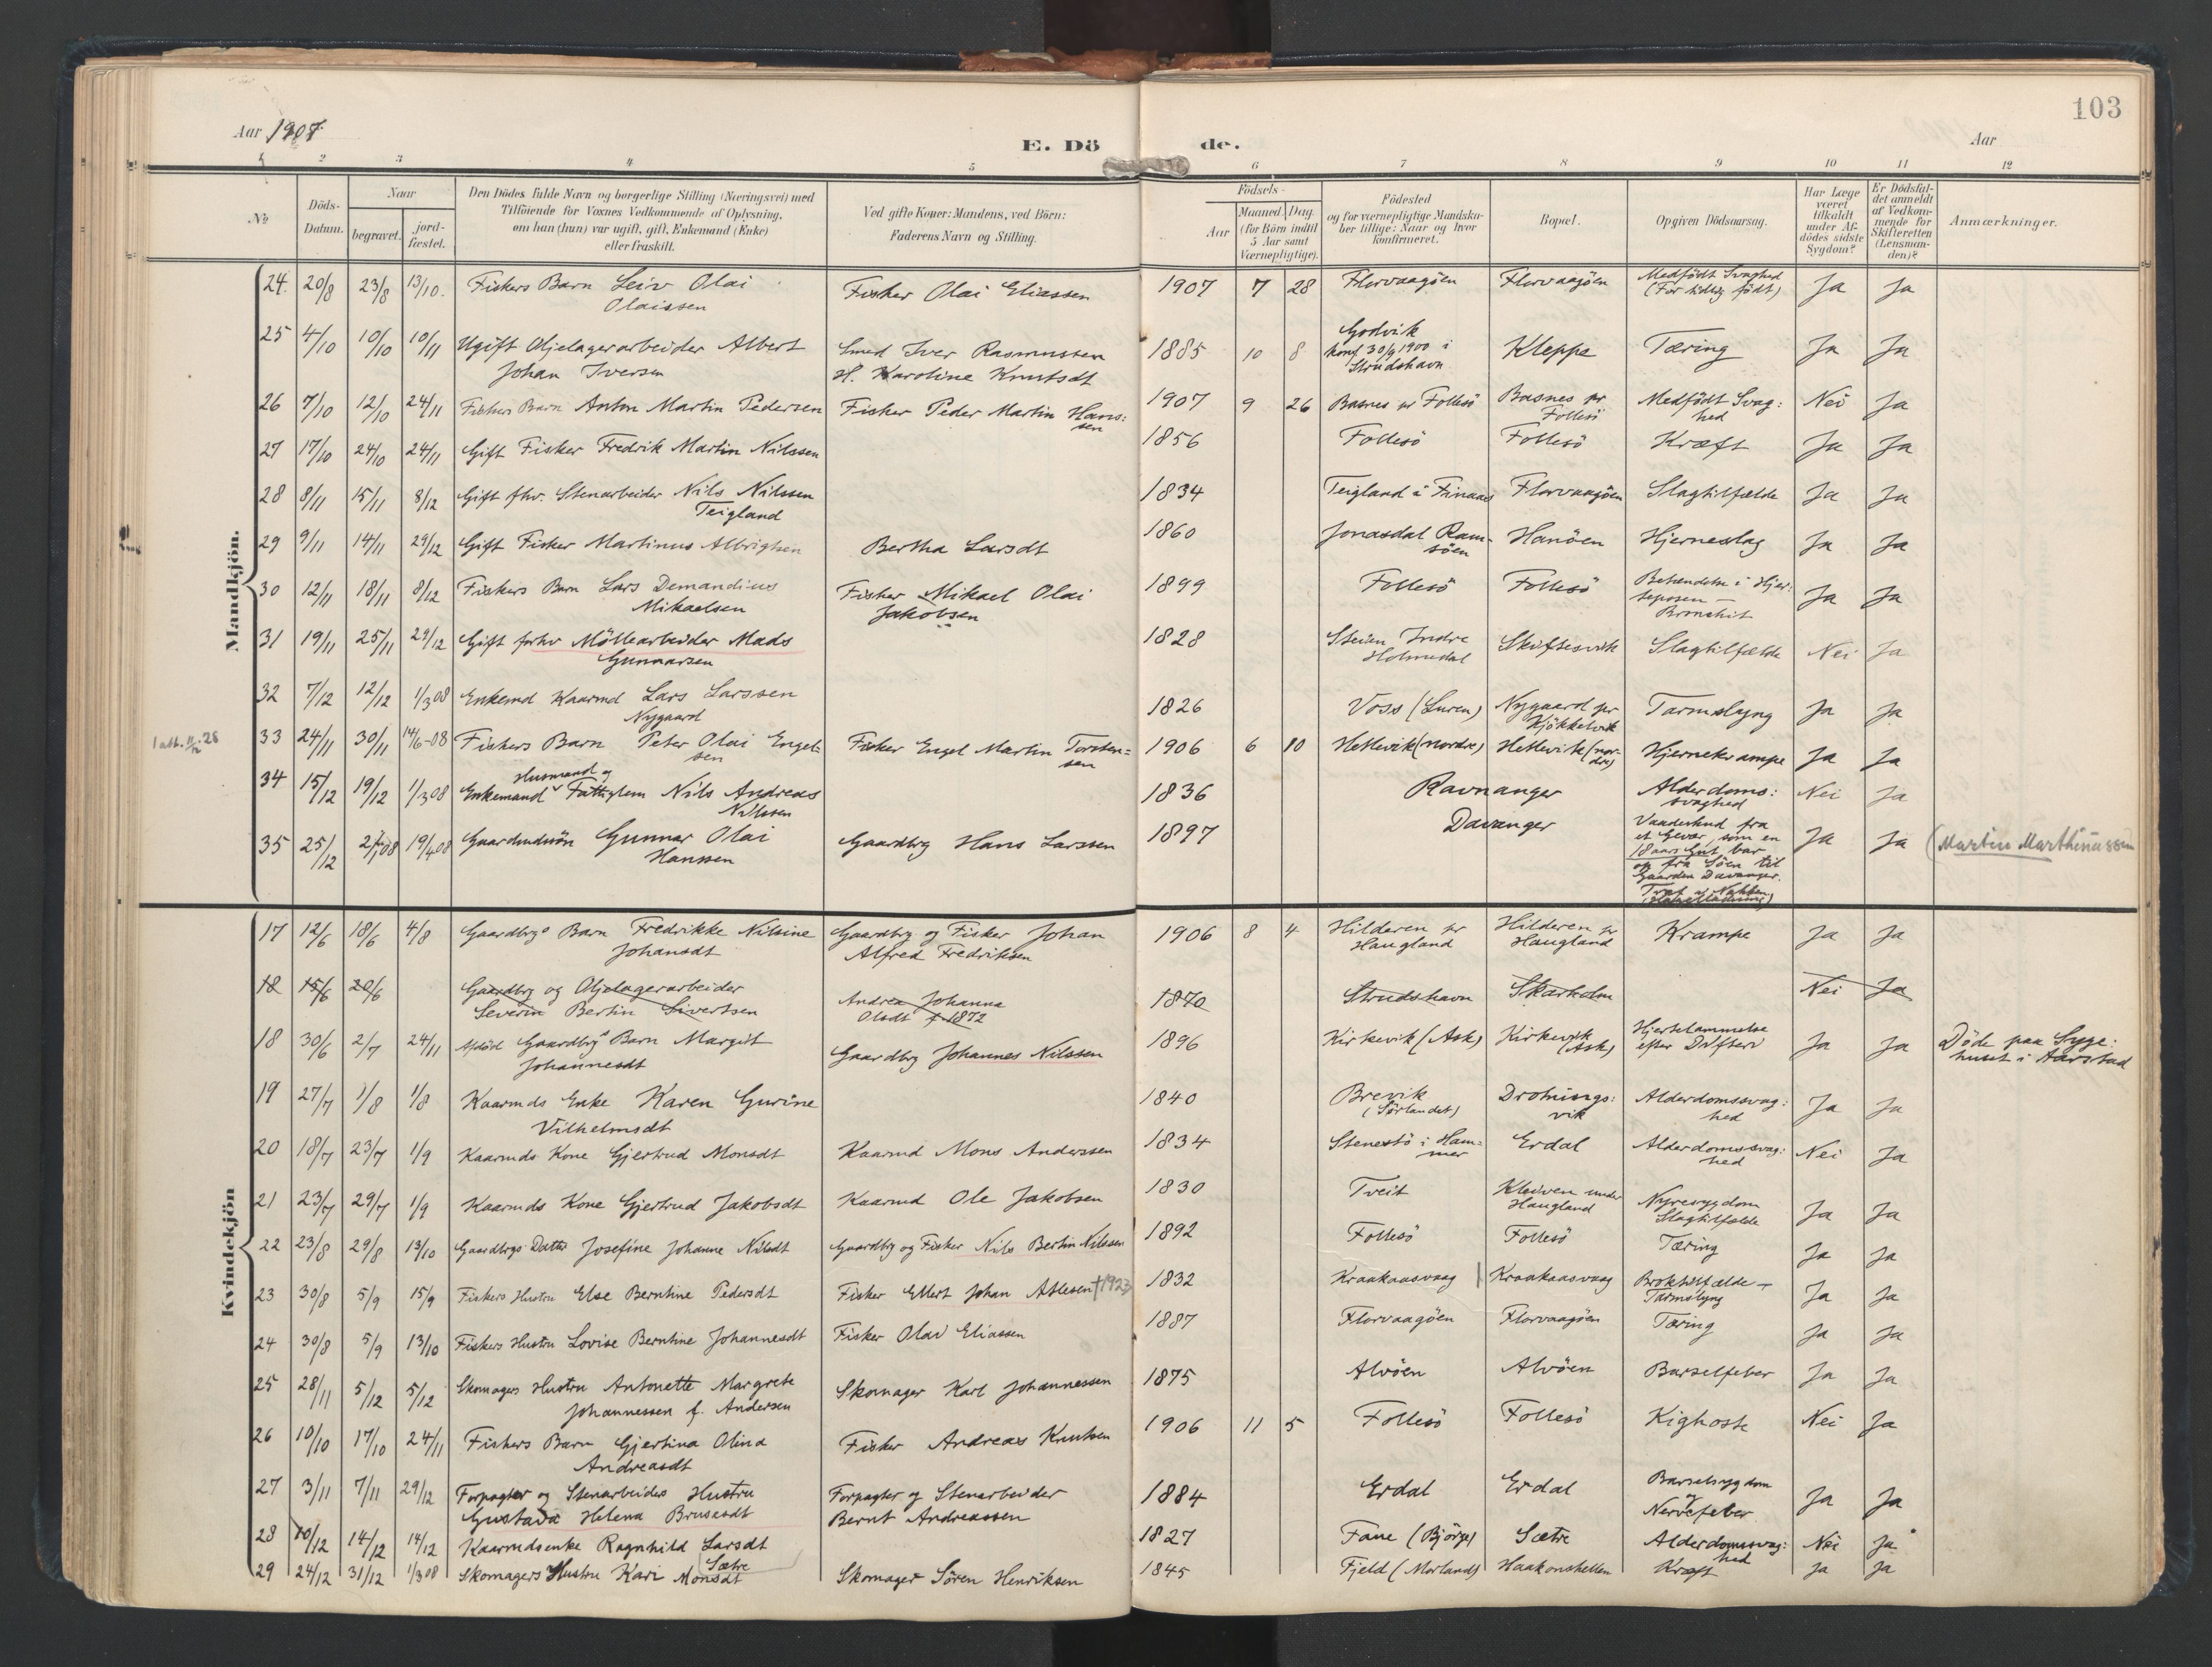 103
Aar 1907
E. Dö
de.
Aar
1 2 3 4 5 6 7 8 9 10 11 12
No
Döds-Datum.
Naar
begravet.
jord-fæstet.
Den Dödes fulde Navn og borgerlige Stilling (Næringsvei) med
Tilföiende for Voxnes Vedkommende af Oplysning,
om han (hun) var ugift, gift, Enkemand (Enke)
eller fraskilt.
Ved gifte Koner: Mandens, ved Börn:
Faderens Navn og Stilling.
Födsels-
Aar
Maaned
Dag
(for Börn indtil
5 Aar samt
Værnepligtige).
Födested
og for værnepligtige Mandska-
ber tillige: Naar og hvor
konfirmeret.
Bopæl.
Opgiven Dödsaarsag.
Har Læge
været
tilkaldt
under Af-
dödes sidste
Sygdom?
Er Dödsfal-
det anmeldt
af Vedkom-
mende for
Skifteretten
(Lensman-
den)?
Anmærkninger.
Mandkjön.
24. 20/8 23/8 13/10. Fiskers Barn Leiv Olai Fisker Olai Eliassen 1907 7 28 Florvaagöen Florvaagöen Medfödt Svaghed Ja Ja
Olaissen (For tidlig födt)
25 4/10 10/10 10/11 Ugift Oljelagerarbeider Albert Smed Iver Rasmussen 1885 10 8 Godvik Kleppe Tæring Ja Ja
Johan Iversen H. Karoline Knutsdt konf 30/9 1900 i
Strudshavn
26 7/10 12/10 24/11 Fiskers Barn Anton Martin Pedersen Fisker Peder Martin Hans: 1907 9 26 Basnes pr Follesö Basnes pr Medfödt Svag: Nei Ja
sen Follesö hed
27 17/10 24/10 24/11 Gift Fisker Fredrik Martin Nilssen 1856 Follesö Follesö Kræft Ja Ja
28 8/11 15/11 8/12 Gift fhv. Stenarbeider Nils Nilssen 1834 Teigland i Finaas Florvaagöen Slagtilfælde Ja Ja
Teigland
29 9/11 14/11 29/12 Gift Fisker Martinus Albrigtsen Bertha Larsdt 1860 Jonasdal Ram- Hanöen Hjerneslag Ja Ja
söen
30 12/11 18/11 8/12 Fiskers Barn Lars Demandius Fisker Mikael Olai 1899 Follesö Follesö Betændelse i Hjer: Ja Ja
Mikaelsen Jakobsen teposen —
Bronchit
31 19/11 25/11 29/12 Gift forhv Möllearbeider Mads 1828 Steien Indre Skiftesvik Slagtilfælde Nei Ja
Gunnarsen Holmedal
32 7/12 12/12 1/3 08 Enkemd Kaarmd Lars Larssen 1826 Voss (Luren) Nygaard pr Tarmslyng Ja Ja
Nygaard Kjökkelvik
33 24/11 30/11 14/6-08 Fiskers Barn Peter Olai Engel- Fisker Engel Martin Torsten= 1906 6 10 Hetlevik (nordre) Hetlevik (nor- Hjernekrampe Ja Ja
sen sen dre)
34 15/12 19/12 1/3 08 Enkemand Husmand og Fattiglem Nils Andreas 1836 Ravnanger Alderdoms: Nei Ja
Nilssen svaghed
35 25/12 2/1 08 19/4 08 Gaardmdssön Gunnar Olai Gaardbrg Hans Larssen 1897 Davanger Vaadeskud fra Ja Ja (Martin Marthinussen
Hanssen et Gevær, som en
18 aars Gut bar
op fra Söen til
Gaarden Davanger.
Kvindekjön
17 12/6 18/6 4/8 Gaardbrgs Barn Fredrikke Nilsine Gaardbrg og Fisker Johan 1906 8 4 Hilderen pr Hilderen pr Krampe Ja Ja
Johansdt Alfred Fredriksen Haugland Haugland
18 15/6 20/6 Gaardbrg og Oljelagerarbeider Andrea Johanna 1870 Strudshavn Skarholm Nei Ja
Severin Bertin Sivertsen Olsdt f. 1872
18 30/6 2/7 24/11 Afdöd Gaardbrgs Barn Margit Gaardbrg Johannes Nilssen 1896 Kirkevik (Ask) Kirkevik Hjertelammelse Ja Ja Döde paa Syge:
Johannesdt (Ask) efter Difteri huset i Aarstad
19 27/7 1/8 1/8 Kaarmds Enke Karen Gurine 1840 Brevik Drotnings: Alderdomssvag: Ja Ja
Vilhelmsdt (Sörlandet) vik hed
20 18/7 23/7 1/9 Kaarmds Kone Gjertrud Monsdt Kaarmd Mons Anderssen 1834 Stenestö i Ham= Erdal Alderdomssvag: Nei Ja
mer hed
21 23/7 29/7 1/9 Kaarmds Kone Gjertrud Jakobsdt Kaarmd Ole Jakobsen 1830 Tveit Kleiven under Nyresygdom Ja Ja
Haugland Slagtilfælde
22 23/8 29/8 13/10 Gaardbrgs Datter Josefine Johanne Nilsdt Gaardbrg og Fisker Nils Bertin Nilssen 1892 Follesö Follesö Tæring Ja Ja
23 30/8 5/9 15/9 Fiskers Hustru Else Berntine Pedersdt Fisker Ellert Johan Atlesen †1923 1832 Kraakaasvaag Kraakaasvaag Broktilfælde — Ja Ja
Tarmslyng
24 30/8 5/9 13/10 Fiskers Hustru Lovise Berntine Johannesdt Fisker Olai Eliassen 1887 Florvaagöen Florvaagöen Tæring Ja Ja
25 28/11 5/12 5/12 Skomagers Hustru Antonette Margrete Skomager Karl Johannessen 1875 Alvöen Alvöen Barselfeber Ja Ja
Johannessen f. Andersen
26 10/10 17/10 24/11 Fiskers Barn Gjertina Olina Fisker Andreas Knutsen 1906 11 5 Follesö Follesö Kighoste Nei Ja
Andreasdt
27 3/11 7/11 29/12 Forpagter og Stenarbeiders Hustru Forpagter og Stenarbeider 1884 Erdal Erdal Barselsygdom Ja Ja
Gustava Helena Brusesdt Bernt Andreassen og
Nervefeber
28 10/12 14/12 14/12 Kaarmdsenke Ragnhild Larsdt 1827 Fane (Björge) Sætre Alderdomssvag: Nei Ja
Sætre hed
29 24/12 31/12 1/3 08 Skomagers Hustru Kari Monsdt Skomager Sören Henriksen 1845 Fjeld (Morland) Haakonshellen Kræft Ja Ja